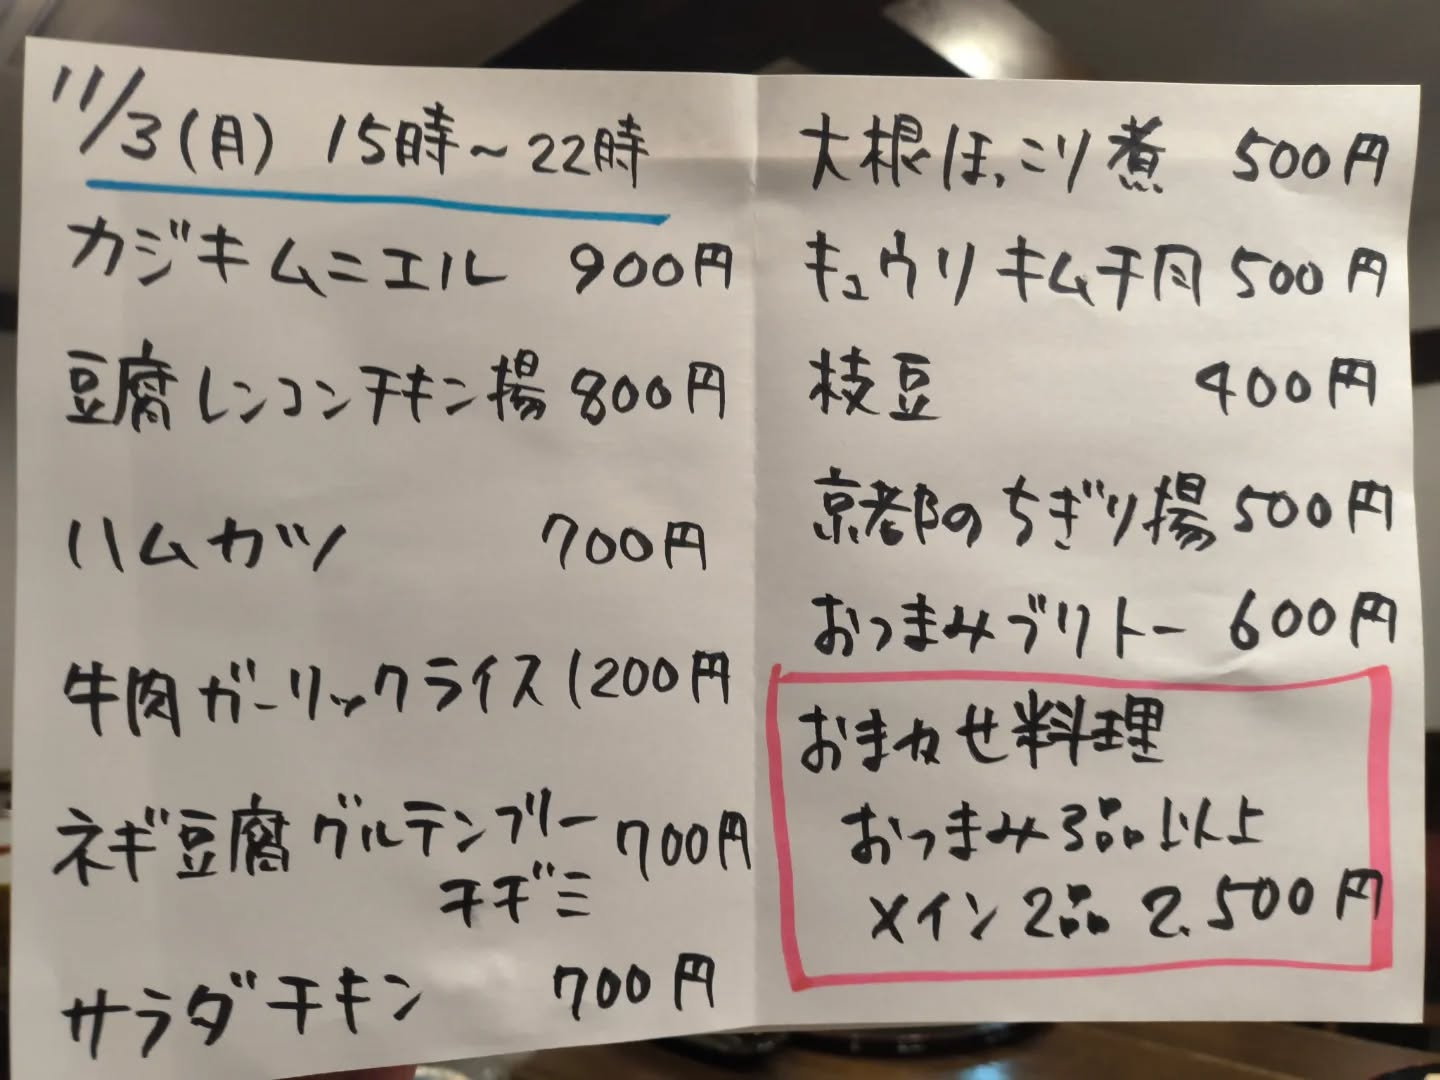 11/3(月) 15時~22時
カジキムニエル 900円
豆腐レンコンチキン揚 800円
ハムカツ 700円
牛肉ガーリックライス 1200円
ネギ豆腐グルテンフリー 700円
チヂミ
サラダチキン 700円
大根ほっこり煮 500円
キュウリキムチ 500円
枝豆 400円
京都のちぎり揚 500円
おつまみブリトー 600円
おまかせ料理
おつまみ3品以上
メイン2品 2.500円